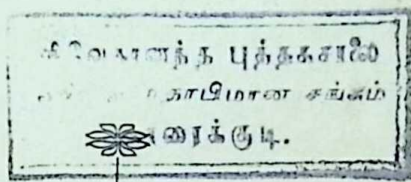 விவேகானந்த புத்தகசாலை
மதாபிமான சங்கம்
காரைக்குடி.